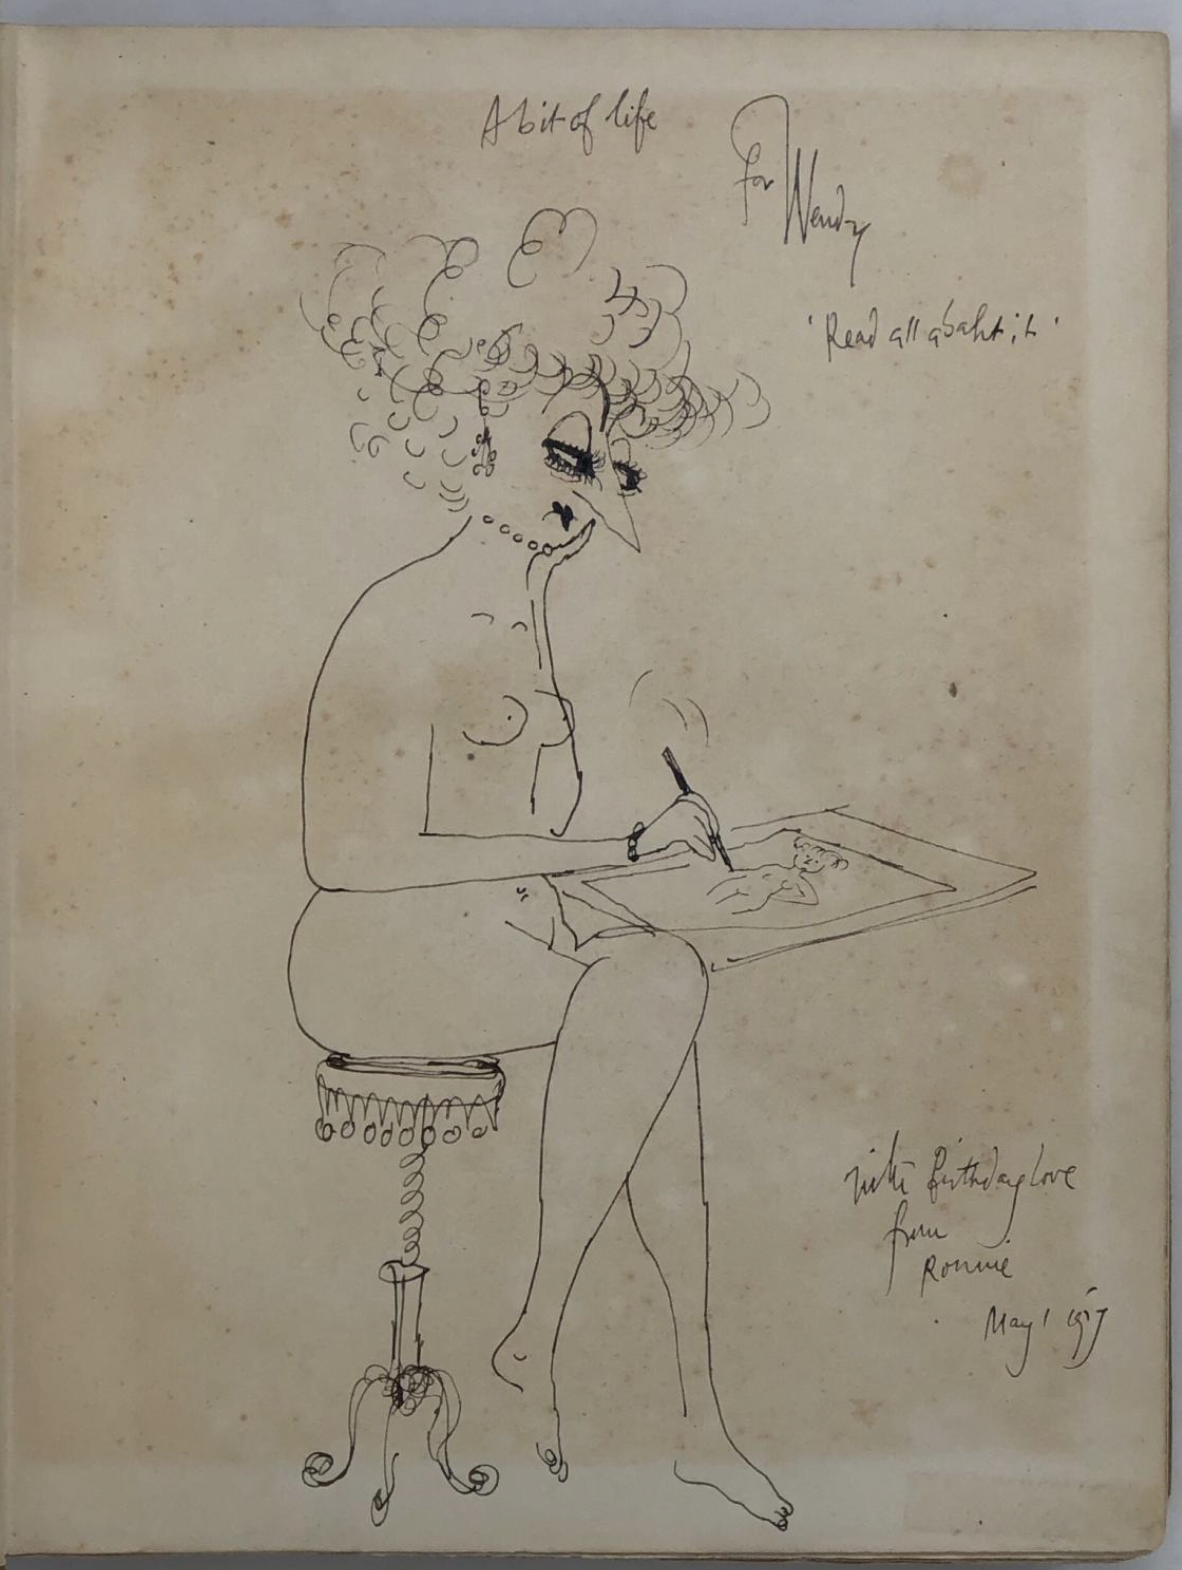 A bit of life
for Wendy
'Read all abaht it'
with Birthday love
from
Ronnie
May 1